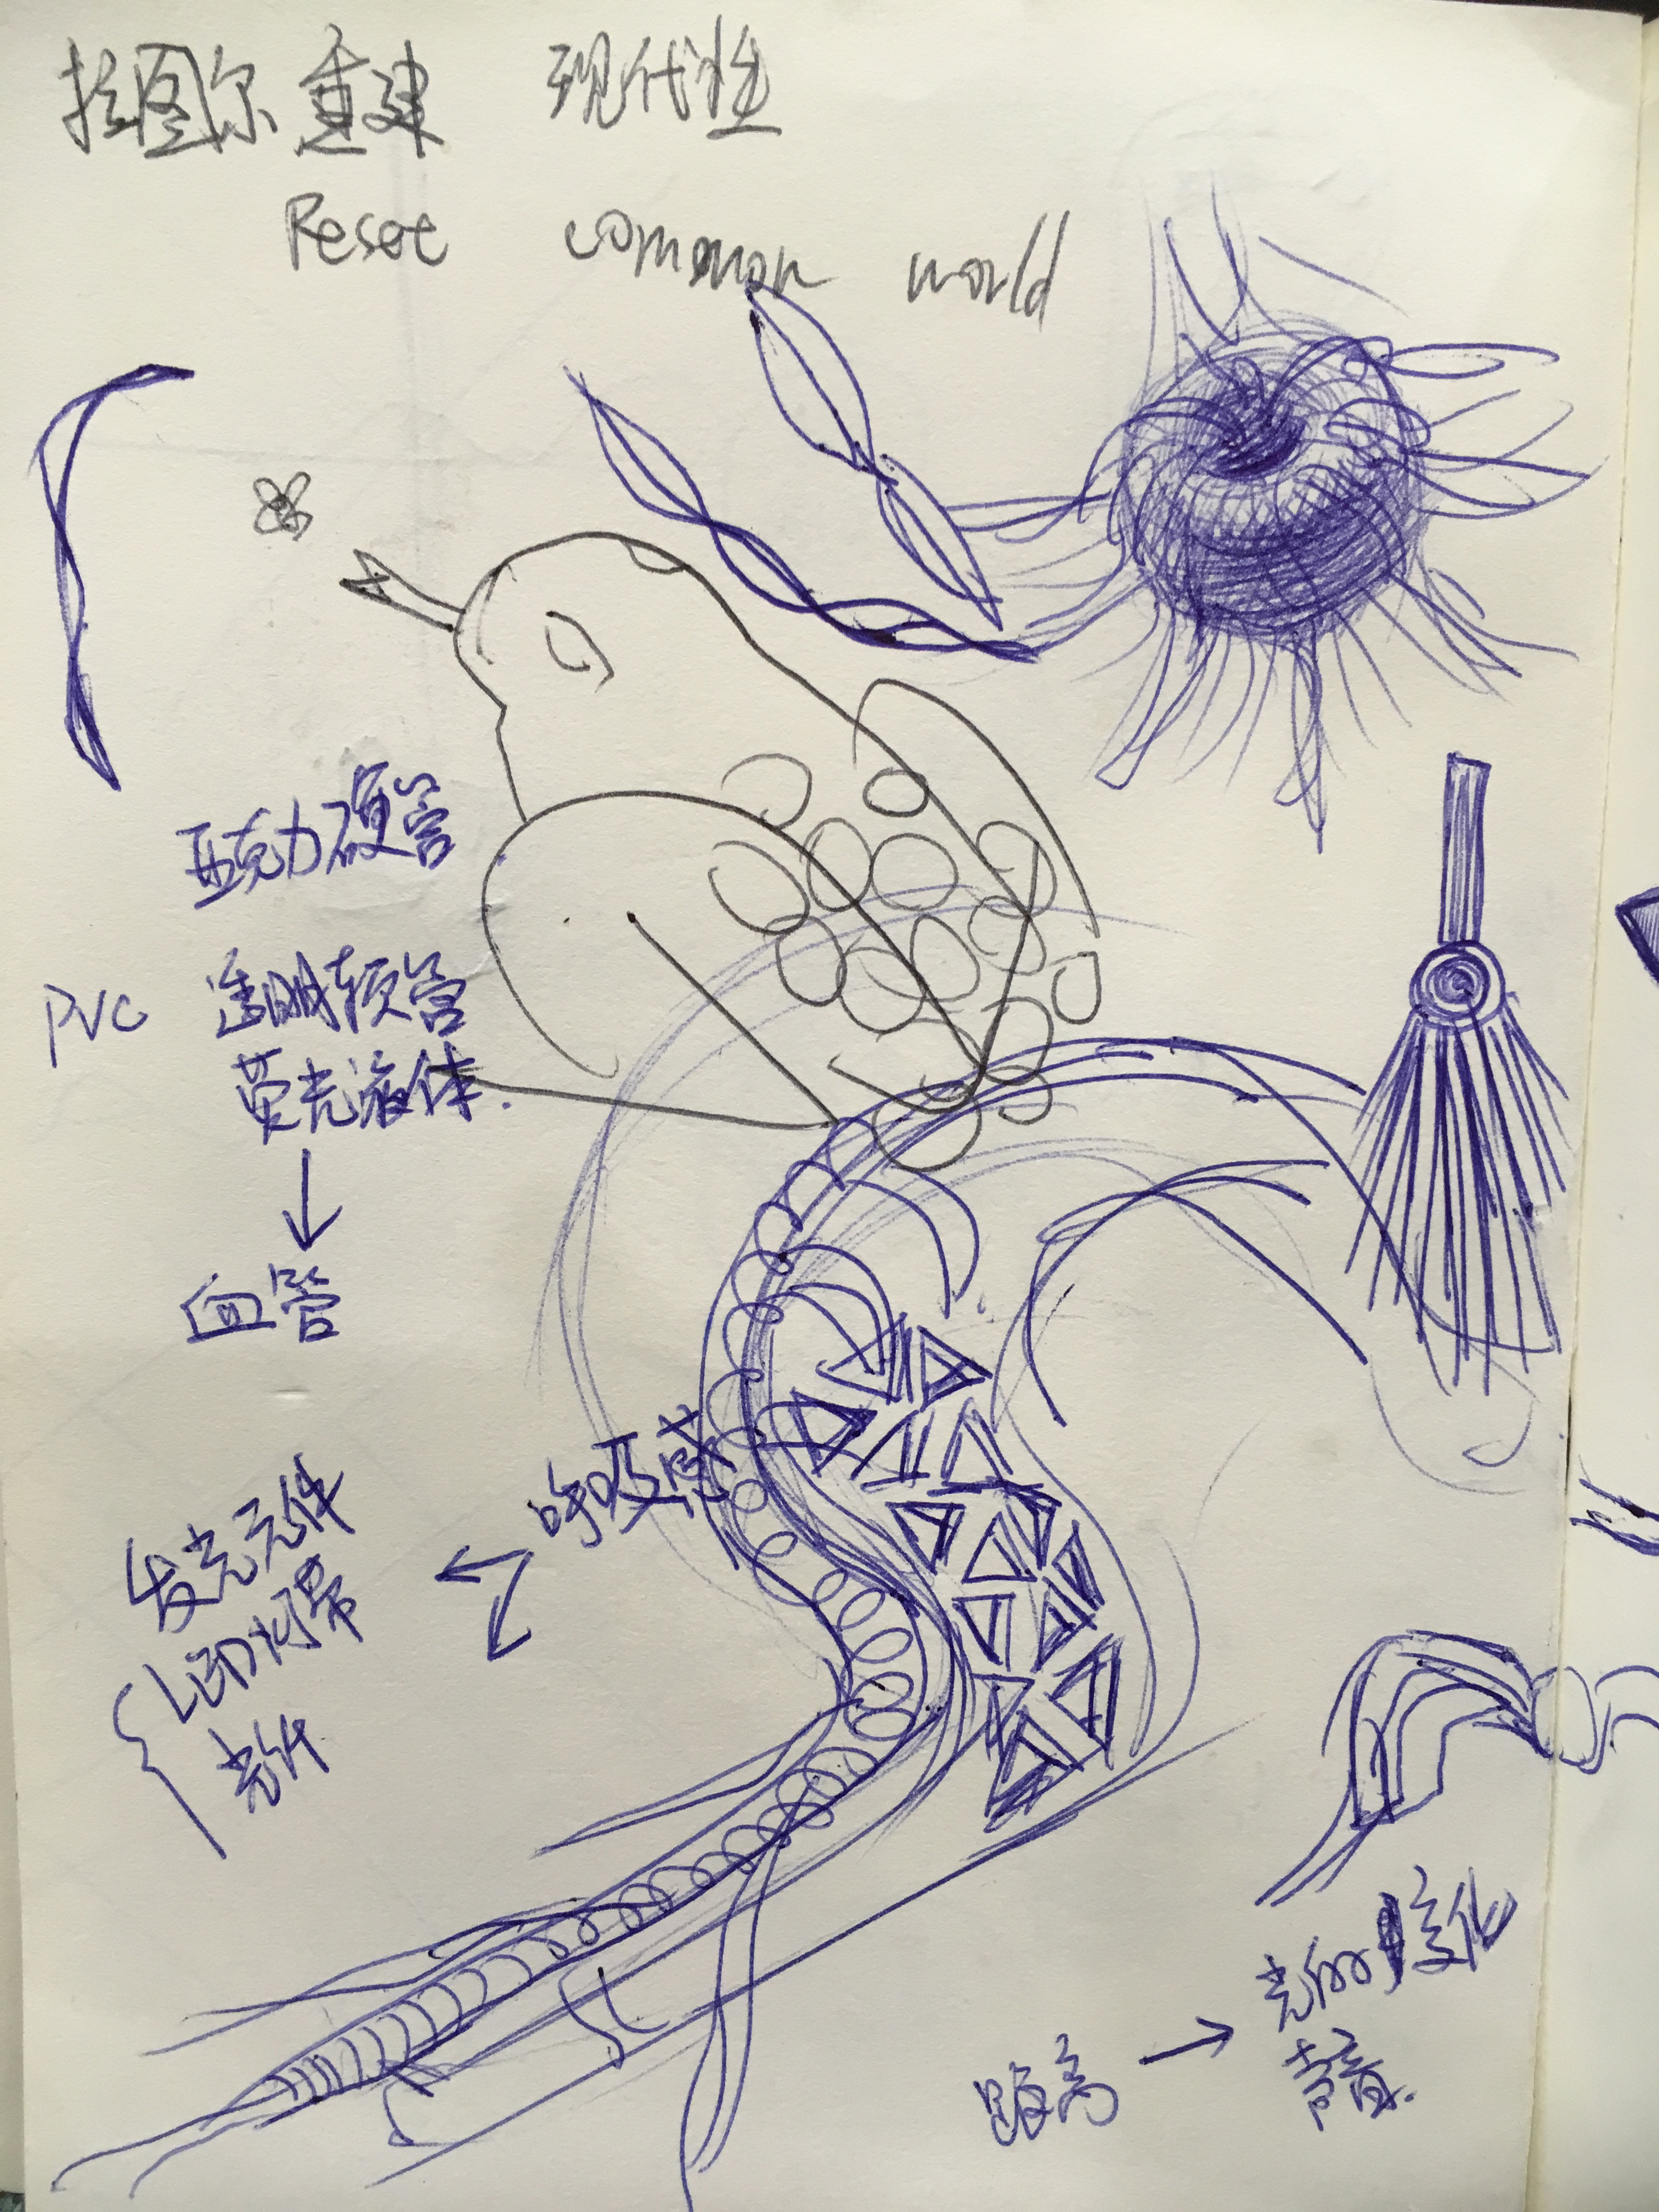 拉图尔重建 现代性
Reset common world
亚克力硬管
PVC 透明软管
荧光液体.
↓
血管
呼吸感
发光元件
LED灯带
光纤
距离 → 光的变化
声音.